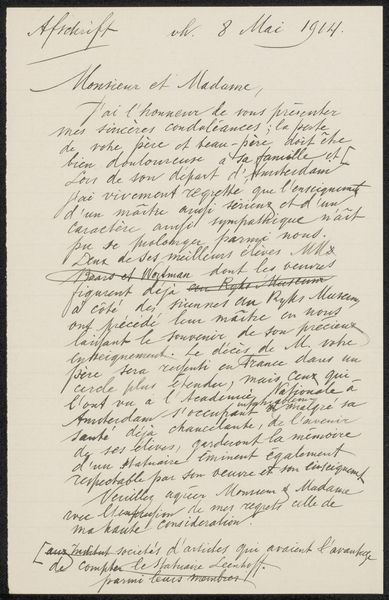 Afschrift vh. 8 Mai 1914.
Monsieur et Madame,
J'ai l'honneur de vous présenter
mes sincères condoléances; la perte
de votre père et beau-père doit être
bien douloureuse à sa famille et [
Lors de son départ d'Amsterdam
j'ai vivement regretté que l'enseignement
d'un maître aussi sérieux et d'un
caractère aussi sympathique n'ait
pu se prolonger parmi nous.
Deux de ses meilleurs élèves MM
Baars et dont les œuvres
figurent déjà au Ryks Museum
à côté des siennes au Ryks Museum
ont précédé leur maître en nous
laissant le souvenir de son précieux
enseignement. Le décès de M. votre
père sera ressenti en France dans un
cercle plus étendu, mais ceux qui
l'ont vu à l'Académie Nationale à
Amsterdam s'occupant malgré sa
santé déjà chancelante, de l'avenir
de ses élèves, garderont la mémoire
d'un statuaire éminent également
respectable par son œuvre et son enseignement
Veuillez agréer Monsieur & Madame
avec l'expression de mes regrets celle de
ma haute considération.
[aux Institut sociétés d'artistes qui avaient l'avantage
de compter le statuaire Leenhoff
parmi leurs membres]